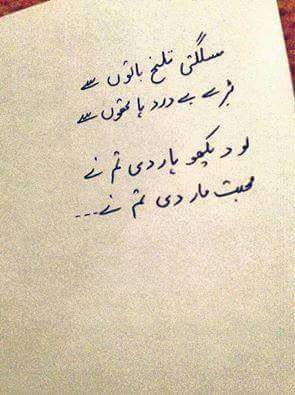 سلگتی تلخ باتوں سے
بڑے بے درد ہاتھوں سے
لو دیکھو ہار دی تم نے
محبت مار دی تم نے۔۔۔